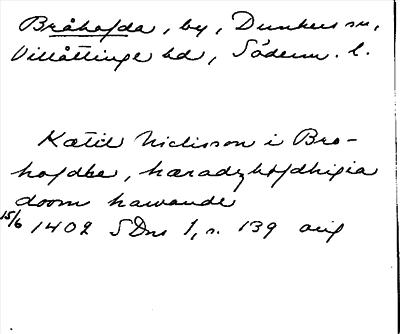 Bråhofda, by, Dunkers sn,
Villåttinge hd, Söderm. l.
Katil Niclisson i Bro-
hofdhe, hæradzhofdhigia
doom hawande
15/6 1402 SDns 1, s. 139 orig